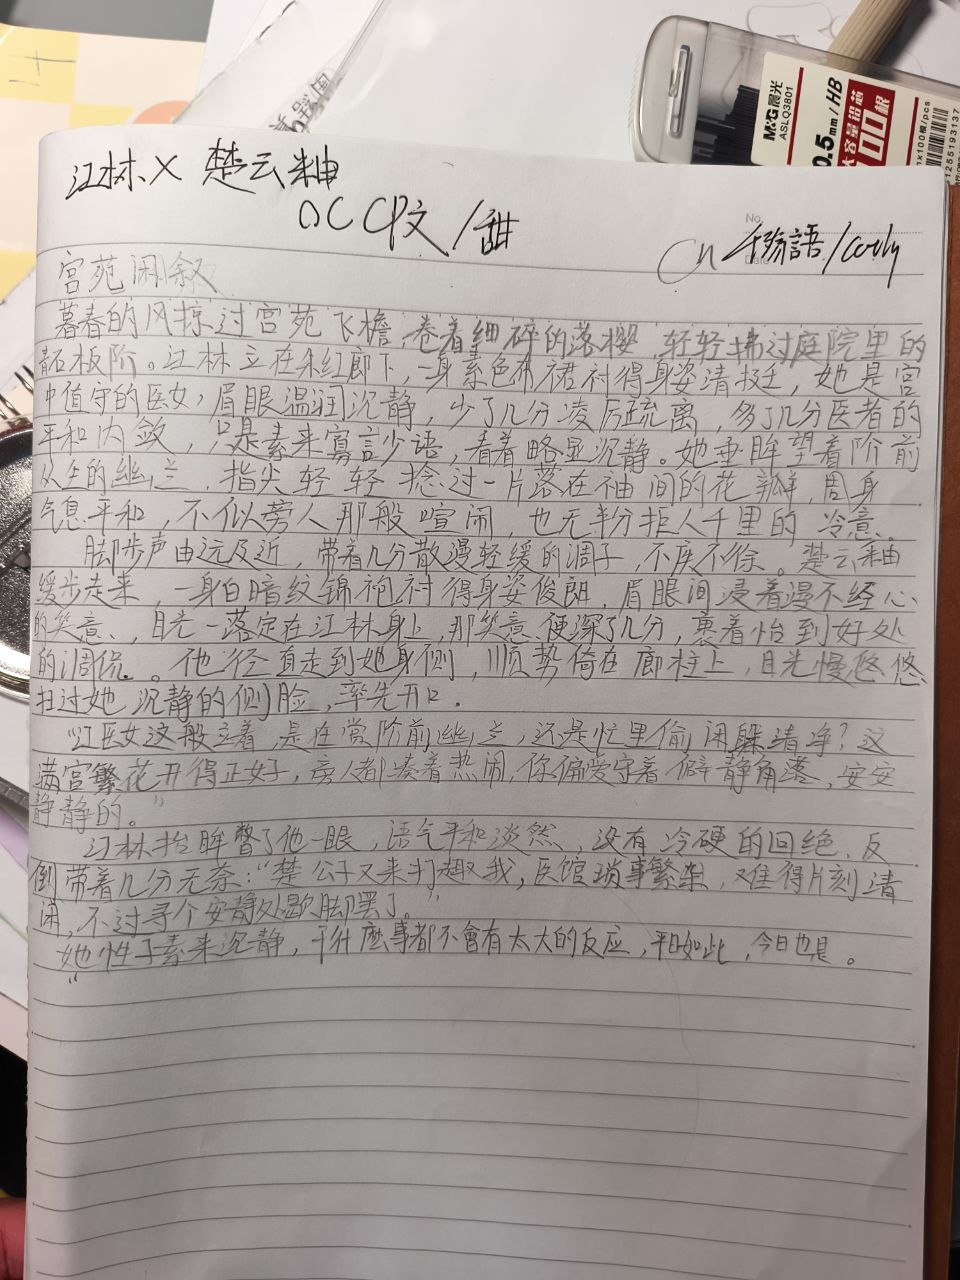 M&G晨光
ASLQ3801
0.5mm/HB
大容量铅芯
江林×楚云釉
OC CP文/甜
Cn
物語/
No.
宫苑闲叙
暮春的风掠过宫苑飞檐,卷着细碎的落樱,轻轻拂过庭院里的
青石板阶。江林立在朱红廊下,一身素色布裙衬得身姿清挺,她是宫
中值守的医女,眉眼温润沉静,少了几分凌厉疏离,多了几分医者的
平和内敛,只是素来寡言少语,看着略显沉静。她垂眸望着阶前
丛生的幽兰,指尖轻轻捻过一片落在袖间的花瓣,周身
气息平和,不似旁人那般喧闹,也无半分拒人千里的冷意。
脚步声由远及近,带着几分散漫轻缓的调子,不疾不徐。楚云釉
缓步走来,一身白暗纹锦袍衬得身姿俊朗,眉眼间浸着漫不经心
的笑意,目光一落定在江林身上,那笑意便深了几分,裹着恰到好处
的调侃。他径直走到她身侧,顺势倚在廊柱上,目光慢悠悠
扫过她沉静的侧脸,率先开口.
“江医女这般立着,是在赏阶前幽兰,还是忙里偷闲躲清净?这
满宫繁花开得正好,旁人都凑着热闹,你偏爱守着僻静角落,安安
静静的。”
江林抬眸瞥了他一眼,语气平和淡然,没有冷硬的回绝,反
倒带着几分无奈:“楚公子又来打趣我,医馆琐事繁杂,难得片刻清
闲,不过寻个安静处歇脚罢了。”
她性子素来沉静,干什麼事都不會有太大的反应,平日如此,今日也是。
“